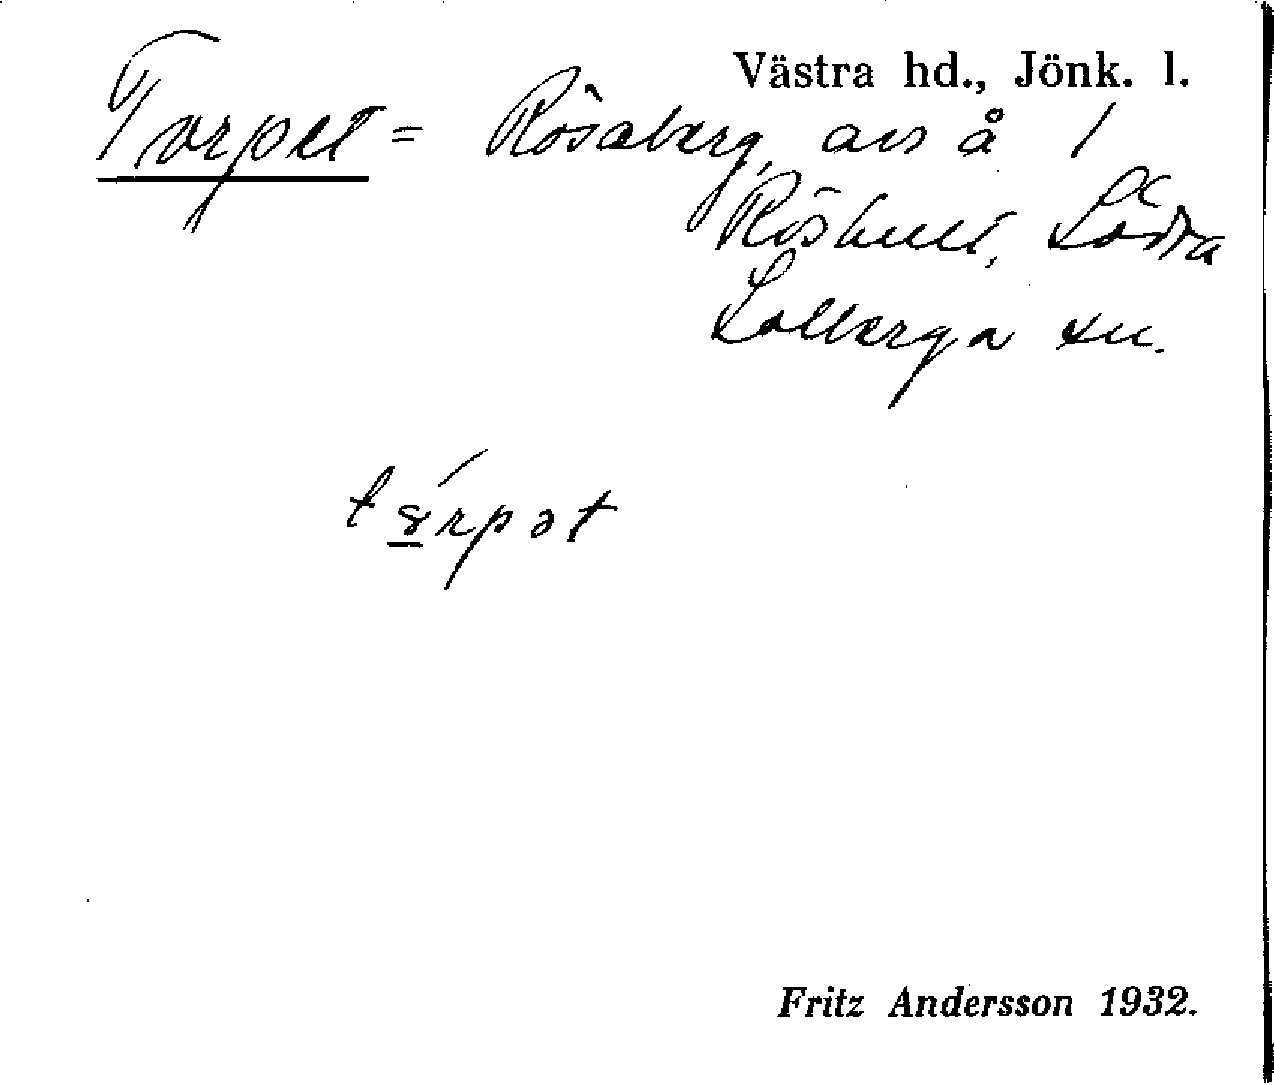 Västra hd., Jönk. l.
Torpet = Rösaberg, avs å 1
Röshult, Södra
Solberga sn.
tȣ́rpət
Fritz Andersson 1932.